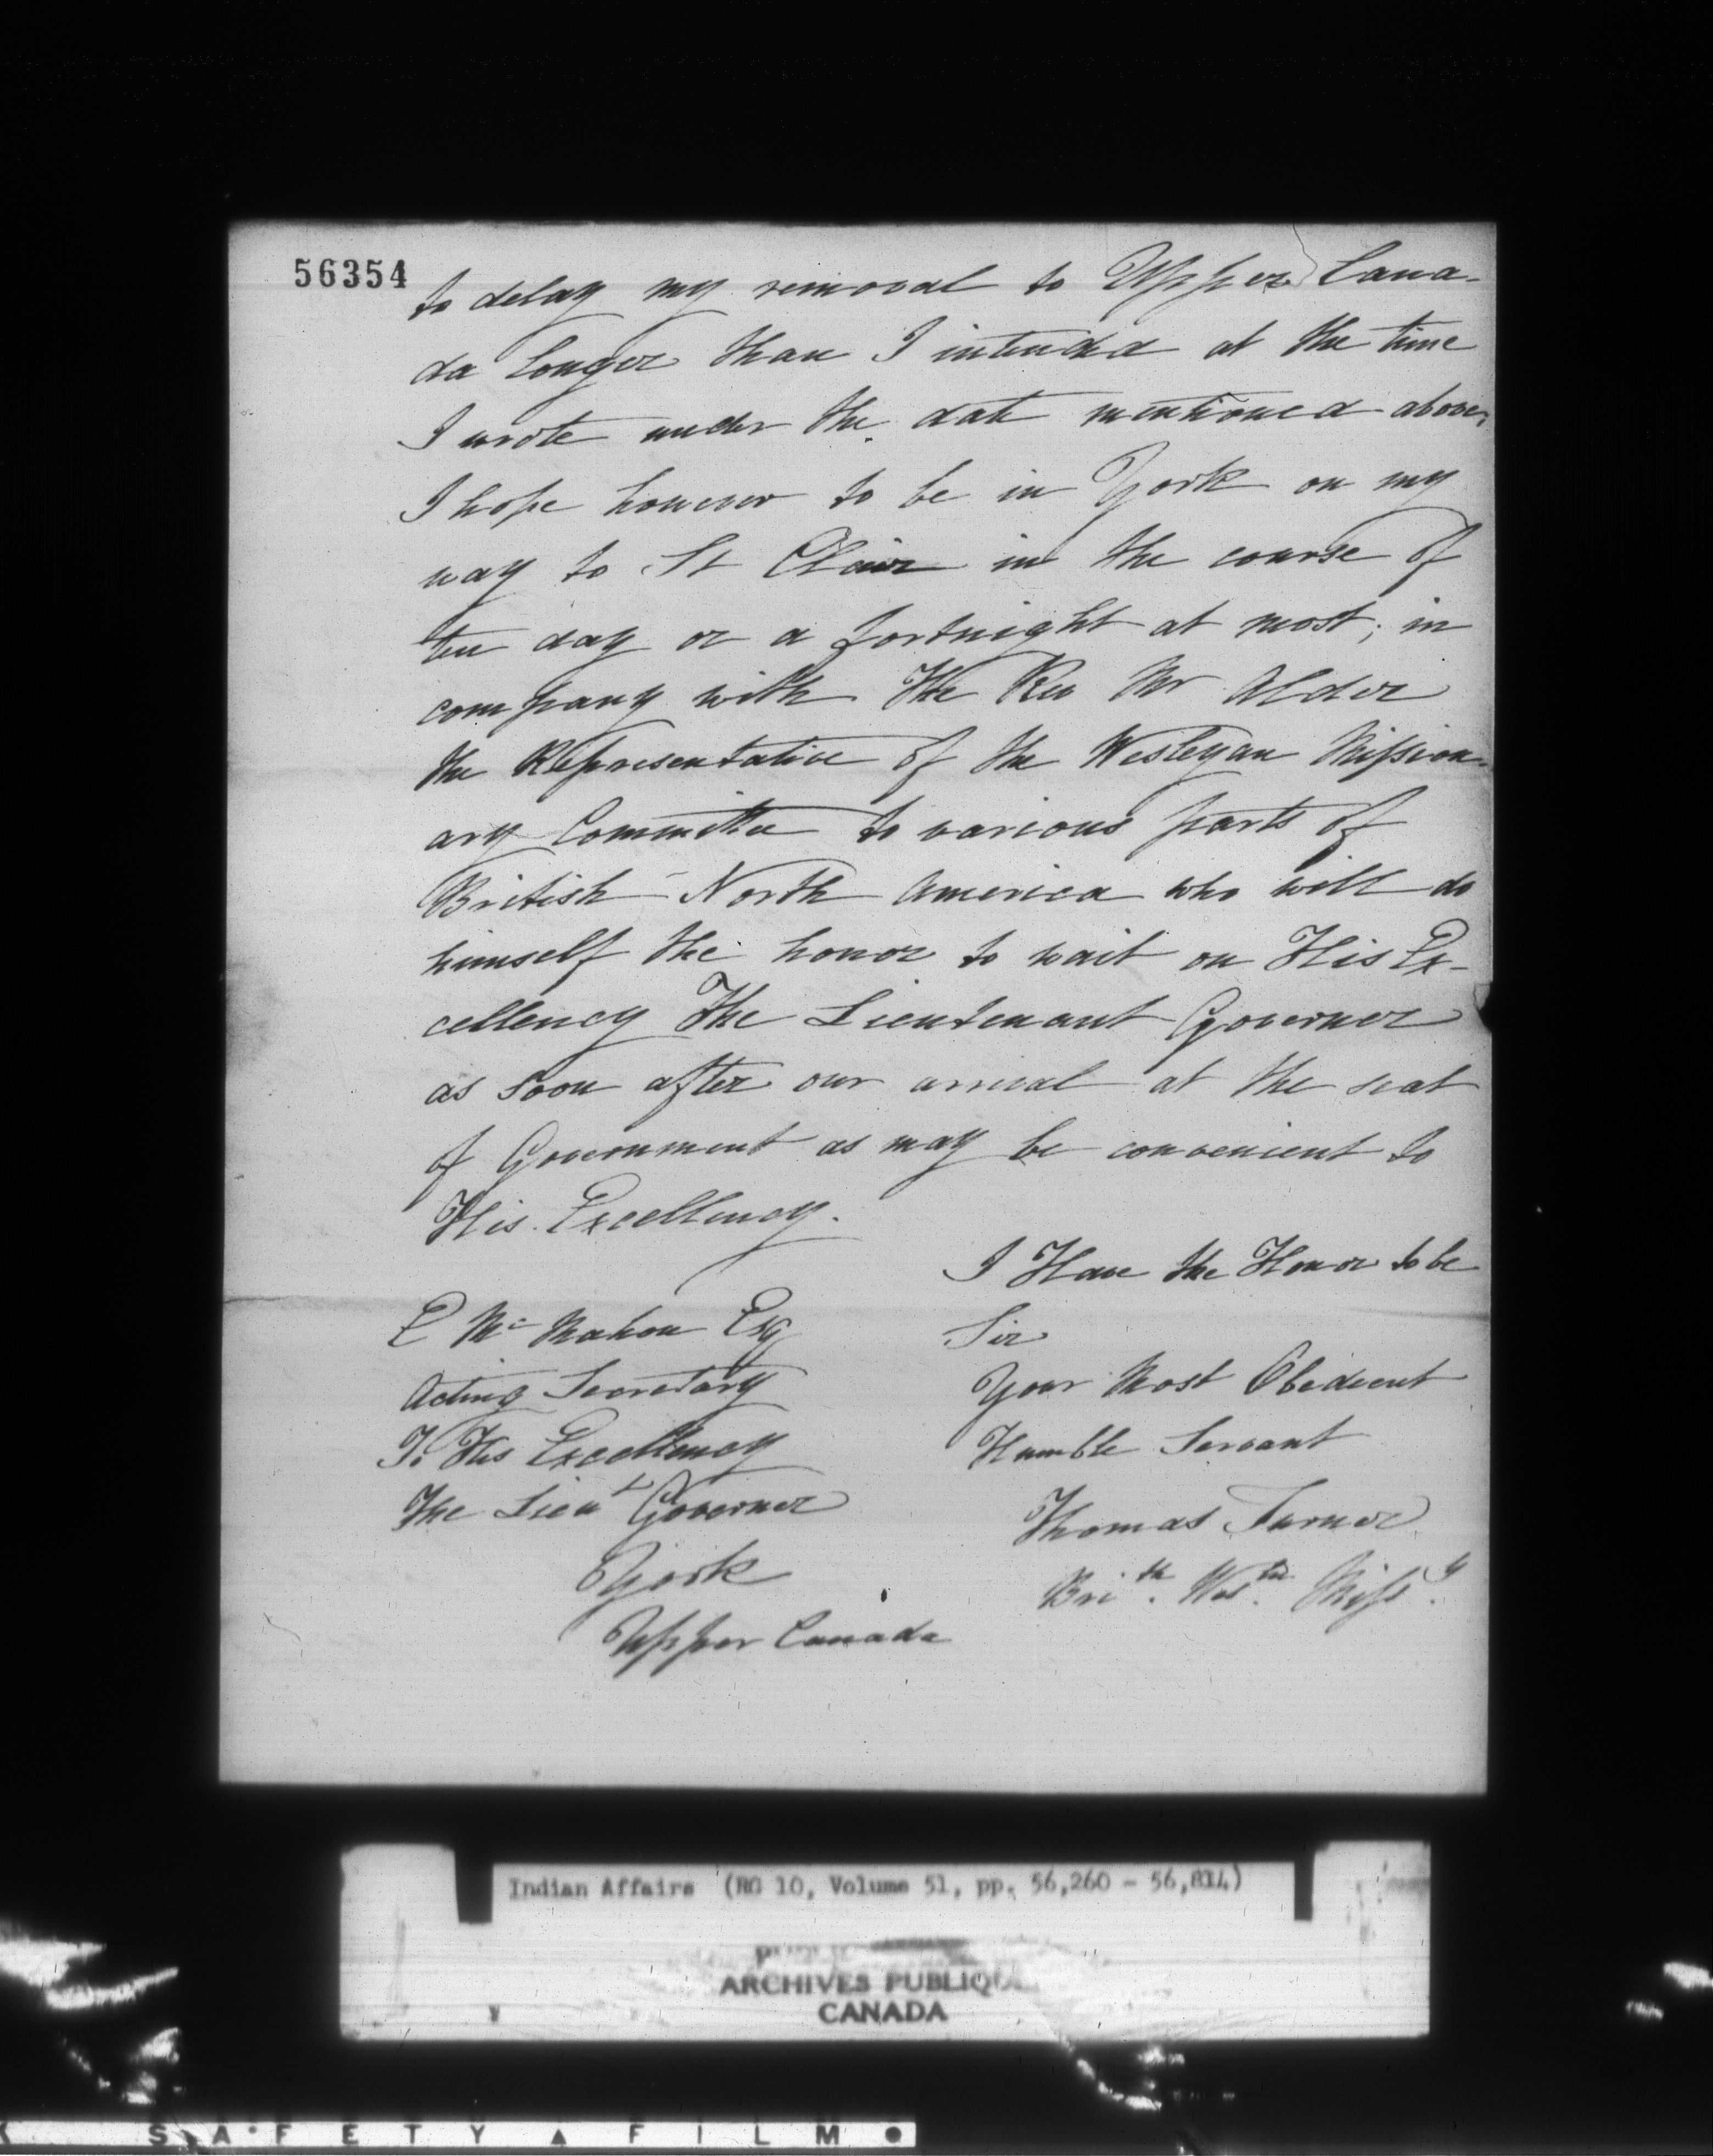 56354
to delay my removal to Upper Cana-
da longer than I intended at the time
I wrote under the date mentioned above;
I hope however to be in York on my
way to St Clair in the course of
ten day or a fortnight at most; in
company with The Rev Mr Alder
the Representative of the Wesleyan Mission-
ary Committee to various parts of
British North America who will do
himself the honor to wait on His Ex-
cellency The Lieutenant Governor
as soon after our arrival at the seat
of Government as may be convenient to
His Excellency.
I Have the Honor to be
Sir
Your Most Obedient
Humble Servant
Thomas Turner
Brith. Wesn. Missy.
E McMahon Esq
Acting Secretary
To His Excellency
The Lieut Governor
York
Upper Canada
Indian Affairs (RG 10, Volume 51, pp. 56,260 - 56,814)
ARCHIVES PUBLIQU
CANADA
SAFETY ▲ FILM ●